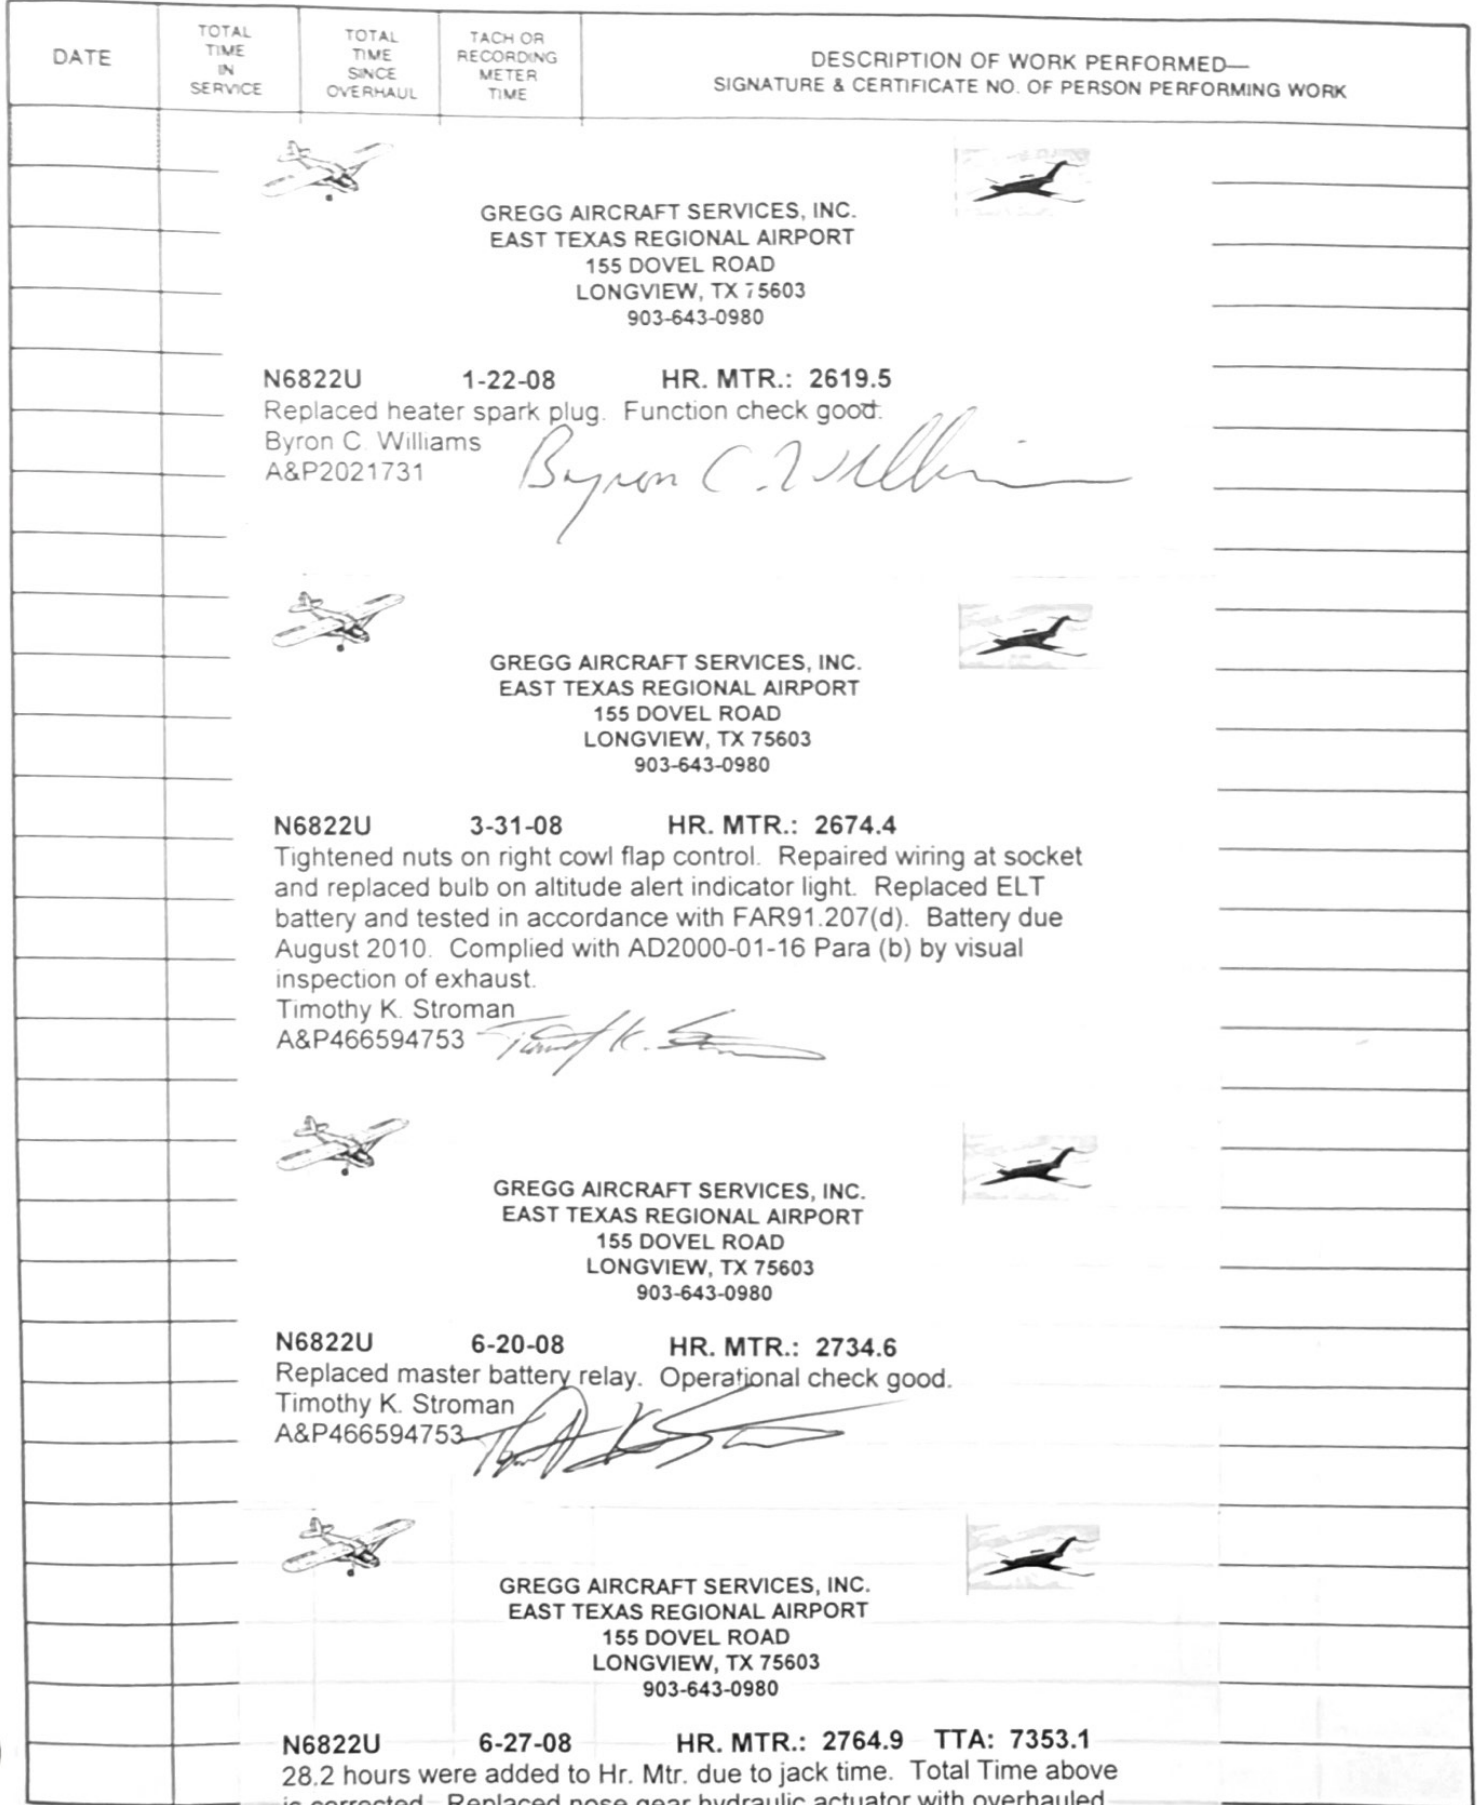 DATE
TOTAL
TIME
IN
SERVICE
TOTAL
TIME
SINCE
OVERHAUL
TACH OR
RECORDING
METER
TIME
DESCRIPTION OF WORK PERFORMED—
SIGNATURE & CERTIFICATE NO. OF PERSON PERFORMING WORK
GREGG AIRCRAFT SERVICES, INC.
EAST TEXAS REGIONAL AIRPORT
155 DOVEL ROAD
LONGVIEW, TX 75603
903-643-0980
N6822U 1-22-08 HR. MTR.: 2619.5
Replaced heater spark plug. Function check good.
Byron C. Williams
A&P2021731 Byron C. Williams
GREGG AIRCRAFT SERVICES, INC.
EAST TEXAS REGIONAL AIRPORT
155 DOVEL ROAD
LONGVIEW, TX 75603
903-643-0980
N6822U 3-31-08 HR. MTR.: 2674.4
Tightened nuts on right cowl flap control. Repaired wiring at socket
and replaced bulb on altitude alert indicator light. Replaced ELT
battery and tested in accordance with FAR91.207(d). Battery due
August 2010. Complied with AD2000-01-16 Para (b) by visual
inspection of exhaust.
Timothy K. Stroman
A&P466594753
GREGG AIRCRAFT SERVICES, INC.
EAST TEXAS REGIONAL AIRPORT
155 DOVEL ROAD
LONGVIEW, TX 75603
903-643-0980
N6822U 6-20-08 HR. MTR.: 2734.6
Replaced master battery relay. Operational check good.
Timothy K. Stroman
A&P466594753
GREGG AIRCRAFT SERVICES, INC.
EAST TEXAS REGIONAL AIRPORT
155 DOVEL ROAD
LONGVIEW, TX 75603
903-643-0980
N6822U 6-27-08 HR. MTR.: 2764.9 TTA: 7353.1
28.2 hours were added to Hr. Mtr. due to jack time. Total Time above
is corrected. Replaced nose gear hydraulic actuator with overhauled